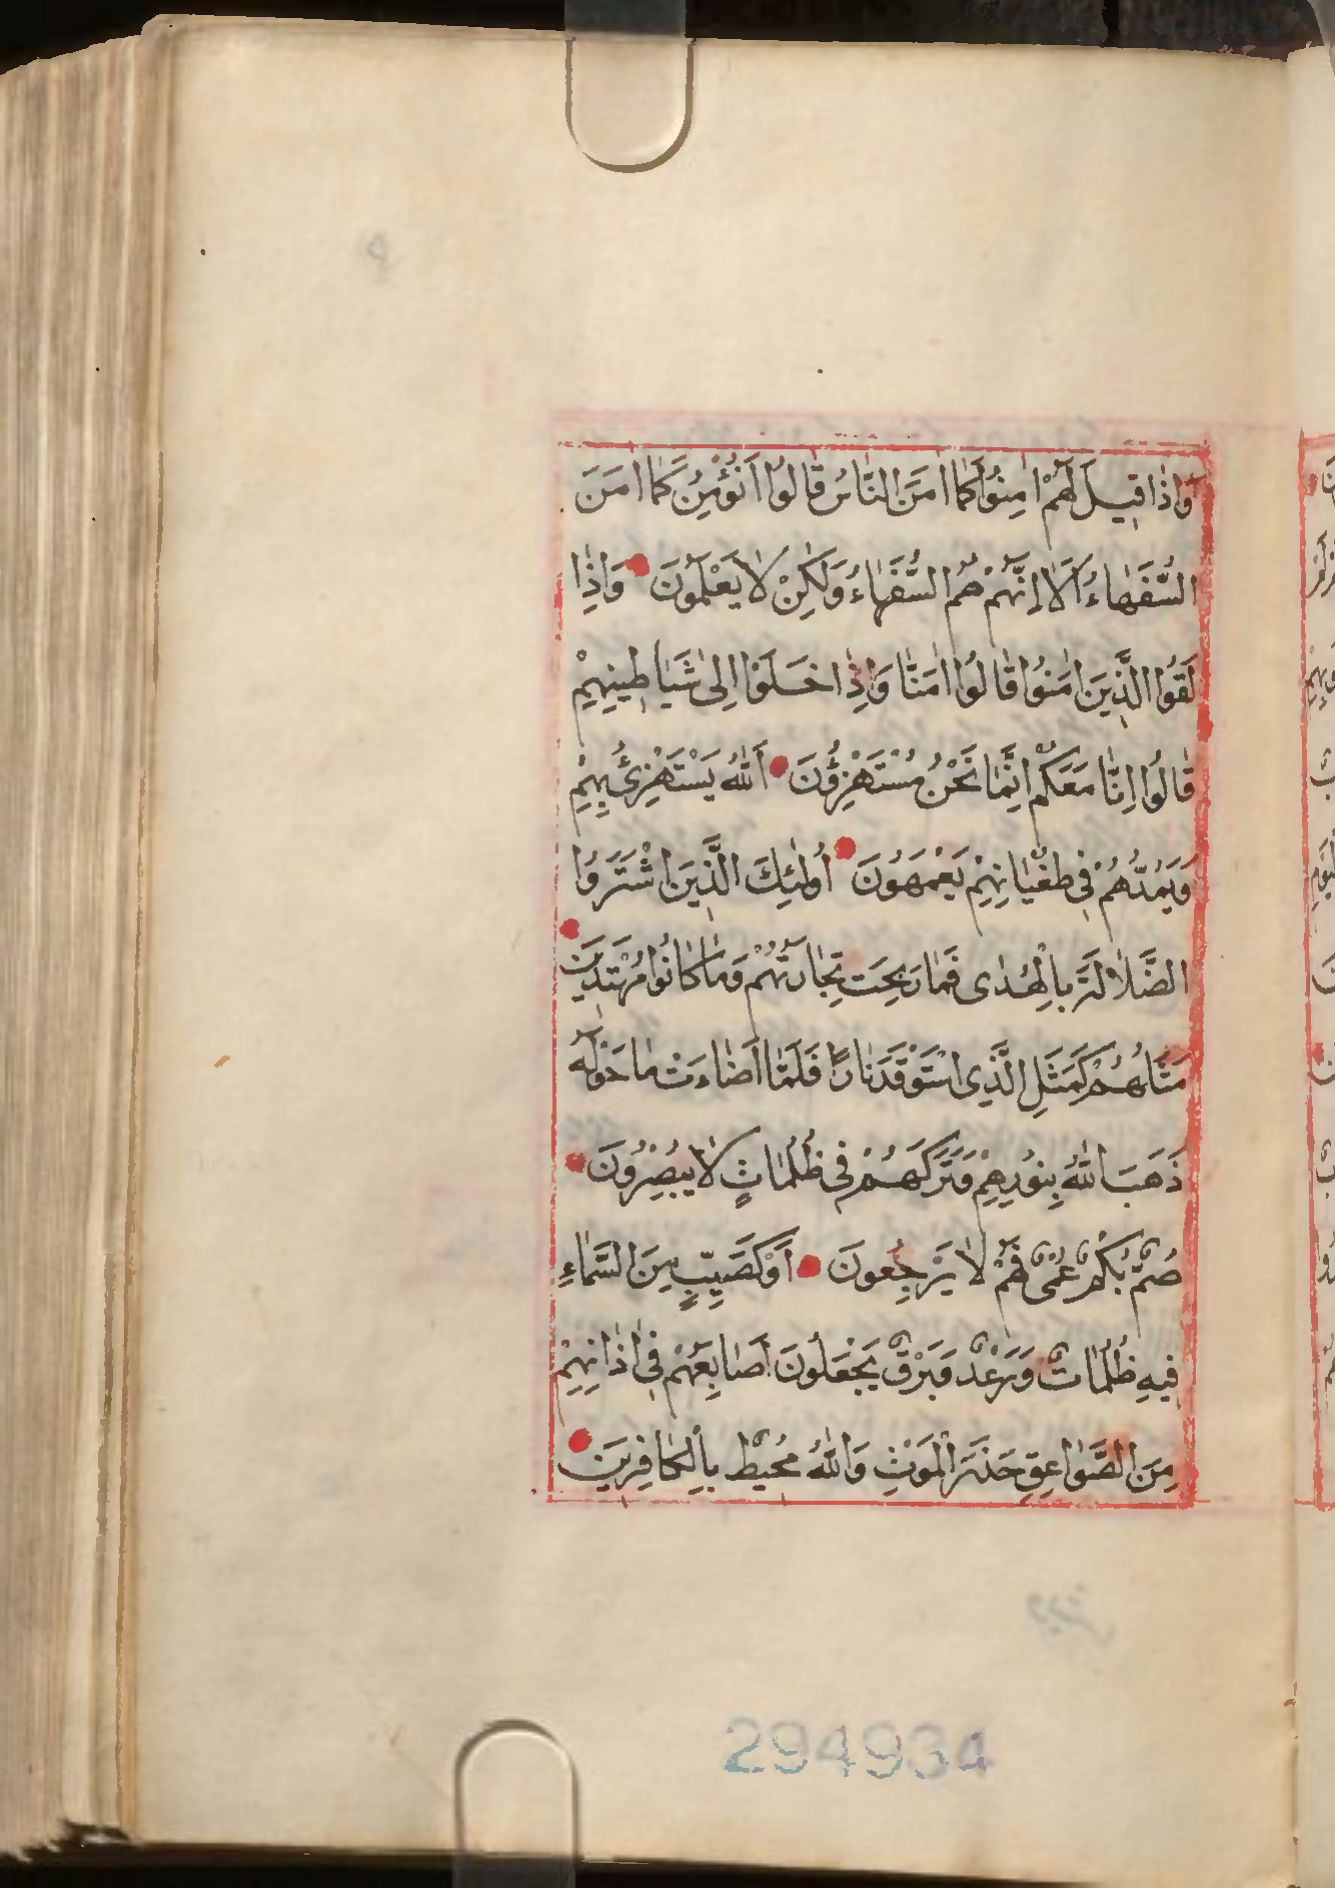 وَاِذَا قٖيلَ لَهُمْ اٰمِنُوا كَمَا اٰمَنَ النَّاسُ قَالُوا اَنُؤْمِنُ كَمَا اٰمَنَ
السُّفَهَاءُ اَلَا اِنَّهُمْ هُمُ السُّفَهَاءُ وَلٰكِنْ لَا يَعْلَمُونَ وَاِذَا
لَقُوا الَّذٖينَ اٰمَنُوا قَالُوا اٰمَنَّا وَاِذَا خَلَوْا اِلٰى شَيَاطٖينِهِمْ
قَالُوا اِنَّا مَعَكُمْ اِنَّمَا نَحْنُ مُسْتَهْزِؤُنَ اَللّٰهُ يَسْتَهْزِئُ بِهِمْ
وَيَمُدُّهُمْ فٖى طُغْيَانِهِمْ يَعْمَهُونَ اُولٰئِكَ الَّذٖينَ اشْتَرَوُا
الضَّلَالَةَ بِالْهُدٰى فَمَا رَبِحَتْ تِجَارَتُهُمْ وَمَا كَانُوا مُهْتَدٖينَ
مَثَلُهُمْ كَمَثَلِ الَّذِى اسْتَوْقَدَ نَارًا فَلَمَّا اَضَاءَتْ مَا حَوْلَهُ
ذَهَبَ اللّٰهُ بِنُورِهِمْ وَتَرَكَهُمْ فٖى ظُلُمَاتٍ لَا يُبْصِرُونَ
صُمٌّ بُكْمٌ عُمْىٌ فَهُمْ لَا يَرْجِعُونَ اَوْ كَصَيِّبٍ مِنَ السَّمَاءِ
فٖيهِ ظُلُمَاتٌ وَرَعْدٌ وَبَرْقٌ يَجْعَلُونَ اَصَابِعَهُمْ فٖى اٰذَانِهِمْ
مِنَ الصَّوَاعِقِ حَذَرَ الْمَوْتِ وَاللّٰهُ مُحٖيطٌ بِالْكَافِرٖينَ
294934